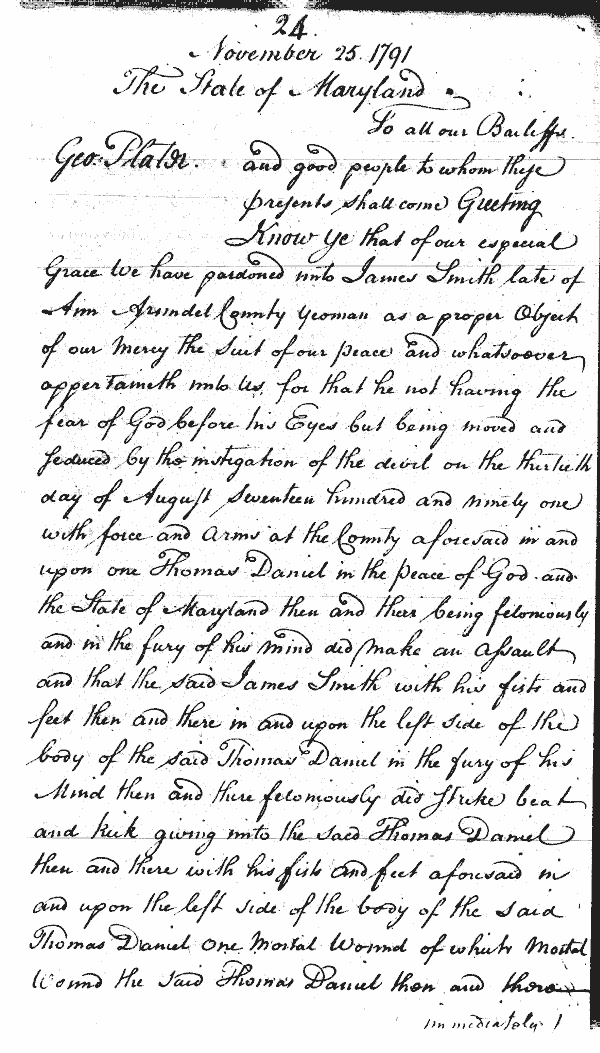 24.
November 25. 1791
The State of Maryland
To all our Bailiffs.
Geo: Plater. and good people to whom these
presents shall come Greeting
Know Ye that of our especial
Grace We have pardoned unto James Smith late of
Ann Arundel County Yeoman as a proper Object
of our Mercy the Suit of our peace and whatsoever
appertaineth unto Us, for that he not having the
fear of God before his Eyes but being moved and
Seduced by the instigation of the devil on the thirtieth
day of August Seventeen hundred and ninety one
with force and Arms at the County aforesaid in and
upon one Thomas Daniel in the peace of God and
the State of Maryland then and there being feloniously
and in the fury of his Mind did make an Assault
and that the said James Smith with his fists and
feet then and there in and upon the left side of the
body of the said Thomas Daniel in the fury of his
Mind then and there feloniously did Strike beat
and kick giving unto the said Thomas Daniel
then and there with his fists and feet aforesaid in
and upon the left side of the body of the said
Thomas Daniel One Mortal Wound of which Mortal
Wound the said Thomas Daniel then and there
immediately